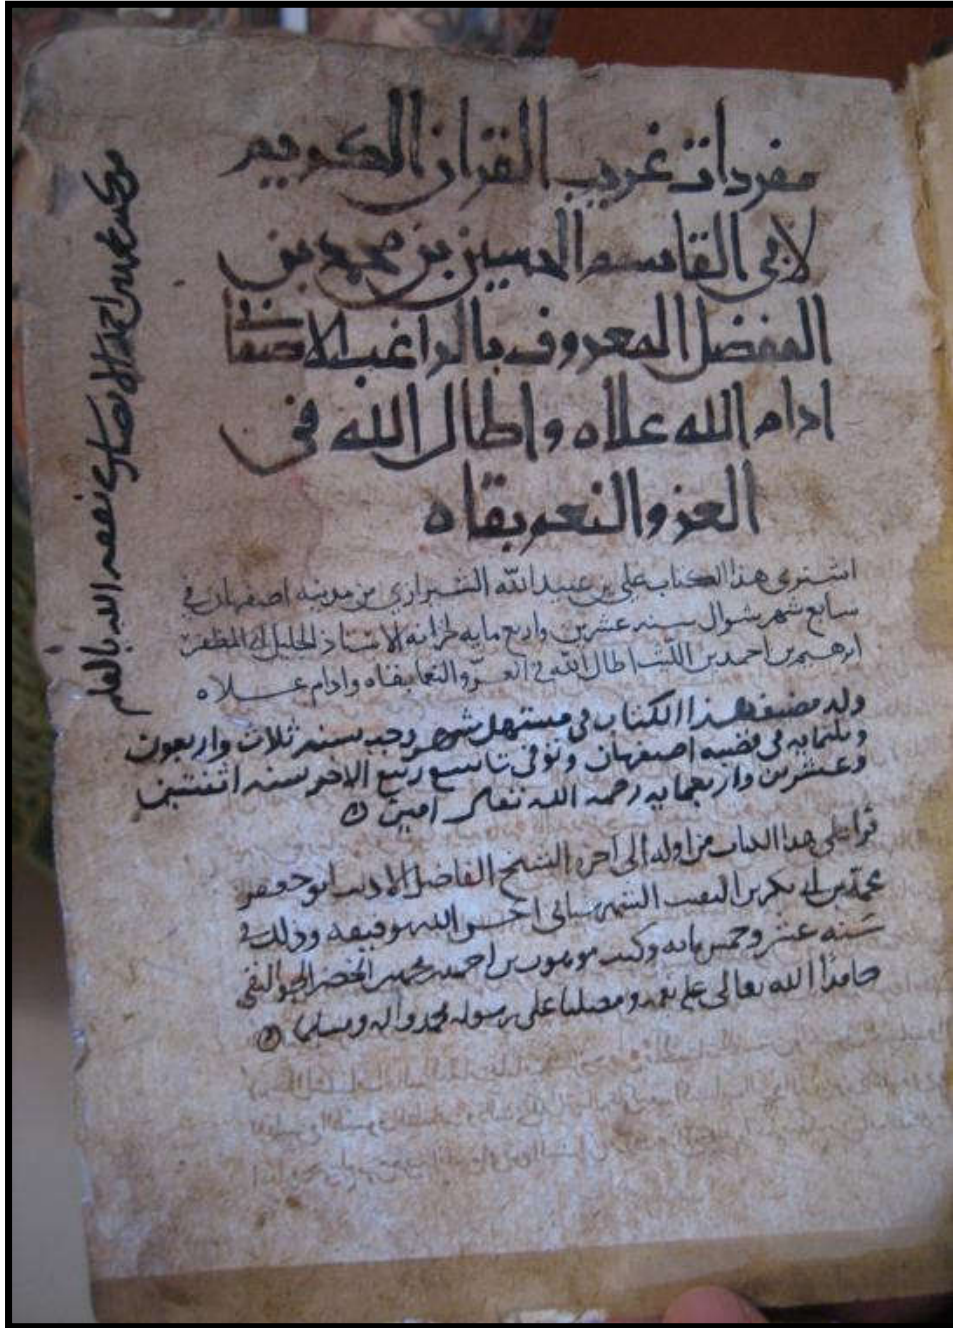 مفردات غريب القران الكريم
لابي القاسم الحسين بن محمد بن
المفضل المعروف بالراغب الاصفهاني
ادام الله علاه واطال الله في
العز والنعم بقاه
اشترى هذا الكتاب علي بن عبيد الله الشيرازي من مدينه اصفهان في
سابع شهر شوال سنه عشرين واربع مايه لخزانه الاستاذ الجليل ابي المظفر
ابرهيم بن احمد بن الليث اطال الله في العز والنعما بقاه وادام عـلاه
ولد مصنف هذا الكتاب في مستهل شهر رجب سنه ثلاث واربعون
وثلثمايه في قصبه اصفهان وتوفي تاسع ربيع الاخر سنه اثنتين
وعشرين واربعمايه رحمه الله امين
قرا علي هذا الكتاب من اوله الى اخره الشيخ الفاضل الاديب ابو جعفر
محمد بن ابي بكر بن النقيب الشهرستاني احسن الله توفيقه وذلك في
سَنه عشر وخمس مايه وكتب موهوب بن احمد بن محمد بن الخضر الجواليقي
حامدًا الله تعالى على نعمه ومصليا على رسوله محمد واله ومسلما
محمد بن احمد الانصاري نفعه الله بالعلم